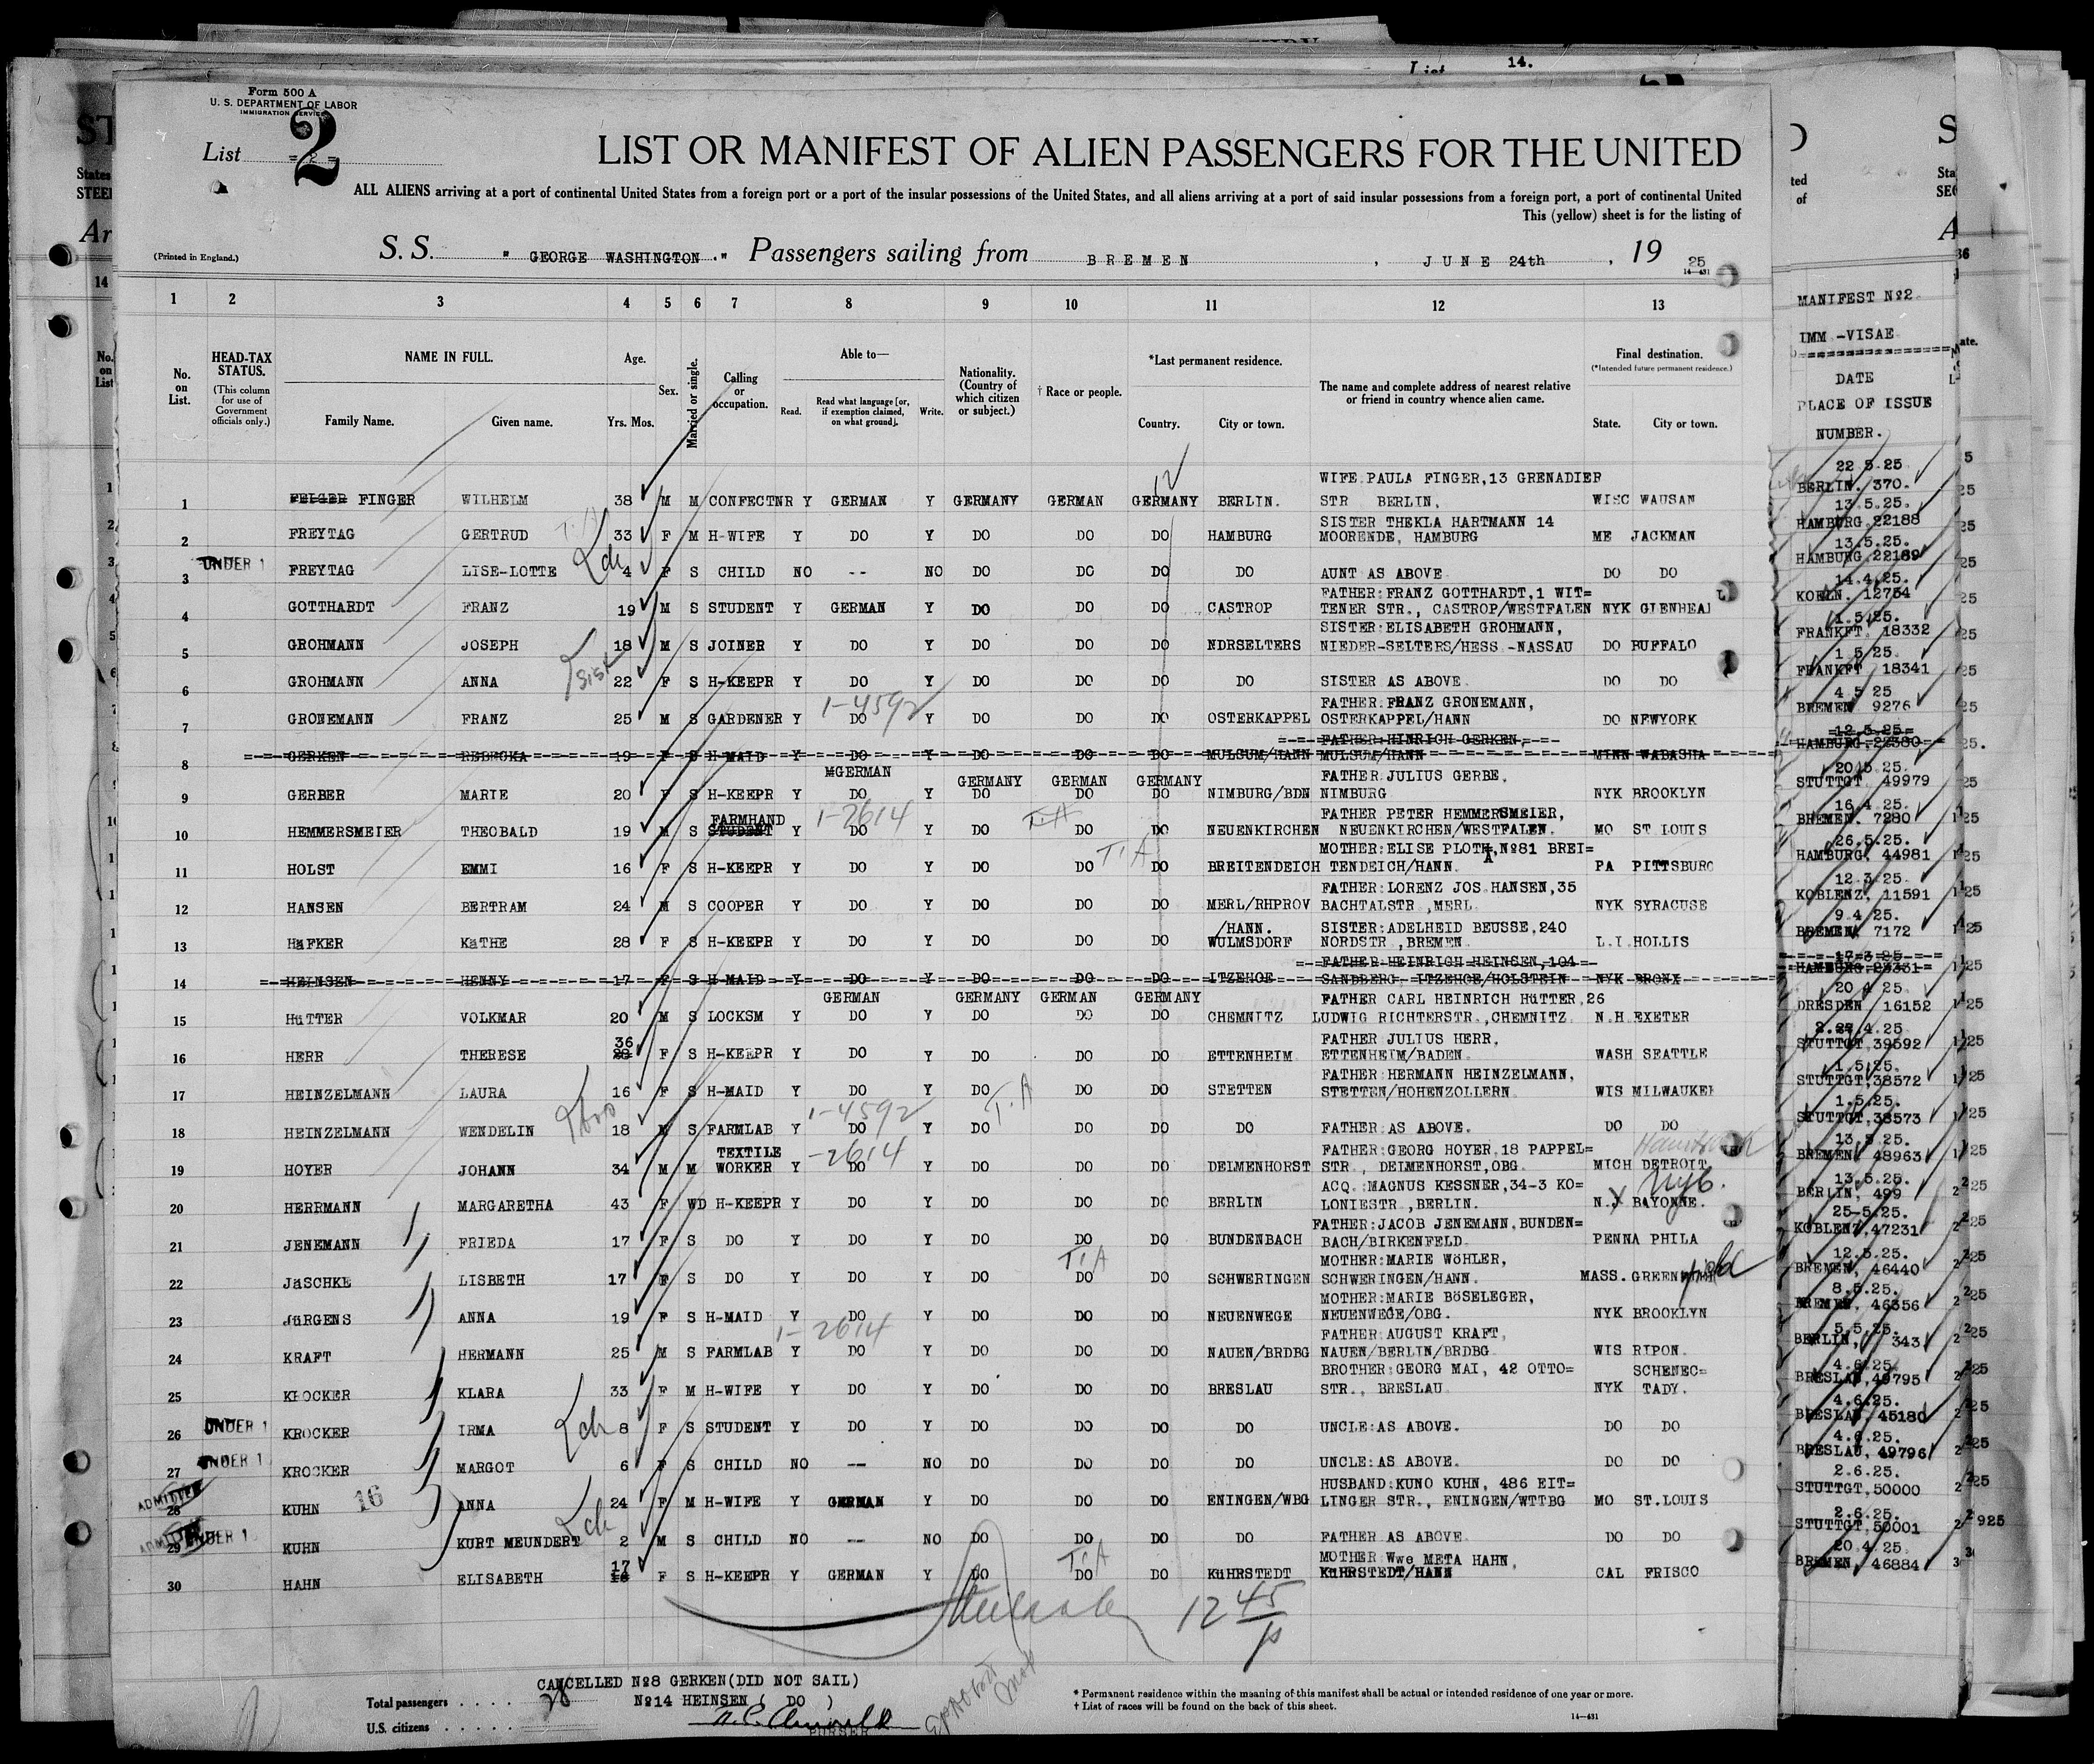 14.
List
Form 500 A
U. S. DEPARTMENT OF LABOR
IMMIGRATION SERVICE
List = 2 =
2
LIST OR MANIFEST OF ALIEN PASSENGERS FOR THE UNITED
ALL ALIENS arriving at a port of continental United States from a foreign port or a port of the insular possessions of the United States, and all aliens arriving at a port of said insular possessions from a foreign port, a port of continental United
This (yellow) sheet is for the listing of
(Printed in England.)
S. S. " GEORGE WASHINGTON . " Passengers sailing from BREMEN , JUNE 24th , 19 25
14-431
1 2 3 4 5 6 7 8 9 10 11 12 13
No. on List.
HEAD-TAX STATUS. (This column for use of Government officials only.)
NAME IN FULL. Family Name. Given name.
Age. Yrs. Mos.
Sex.
Married or single.
Calling or occupation.
Able to— Read. Read what language [or, if exemption claimed, on what ground]. Write.
Nationality. (Country of which citizen or subject.)
† Race or people.
*Last permanent residence. Country. City or town.
The name and complete address of nearest relative or friend in country whence alien came.
Final destination. (*Intended future permanent residence.) State. City or town.
MANIFEST №2
IMM -VISAE
DATE
PLACE OF ISSUE
NUMBER.
WIFE PAULA FINGER,13 GRENADIER 22 5.25
1 FEIGER FINGER WILHELM 38 M M CONFECTNR Y GERMAN Y GERMANY GERMAN GERMANY BERLIN. STR BERLIN, WISC WAUSAN BERLIN. 370.
SISTER THEKLA HARTMANN 14 13.5.25.
2 FREYTAG GERTRUD 33 F M H-WIFE Y DO Y DO DO DO HAMBURG MOORENDE, HAMBURG ME JACKMAN HAMBURG 22188
13.5.25.
3 UNDER 1 FREYTAG LISE-LOTTE 4 F S CHILD NO -- NO DO DO DO DO AUNT AS ABOVE DO DO HAMBURG 22189
FATHER:FRANZ GOTTHARDT,1 WIT= 14.4.25.
4 GOTTHARDT FRANZ 19 M S STUDENT Y GERMAN Y DO DO DO CASTROP TENER STR., CASTROP/WESTFALEN NYK GLENHEAD KOELN. 12754
SISTER:ELISABETH GROHMANN, 1.5.25.
5 GROHMANN JOSEPH 18 M S JOINER Y DO Y DO DO DO NDRSELTERS NIEDER-SELTERS/HESS -NASSAU DO BUFFALO FRANKFT. 18332
1 5.25.
6 GROHMANN ANNA 22 F S H-KEEPR Y DO Y DO DO DO DO SISTER AS ABOVE DO DO FRANKFT 18341
1-4592 FATHER:FRANZ GRONEMANN, 4 5 25
7 GRONEMANN FRANZ 25 M S GARDENER Y DO Y DO DO DO OSTERKAPPEL OSTERKAPPEL/HANN DO NEWYORK BREMEN 9276
FATHER:HINRICH GERKEN, 12.5.25=
8 GERKEN REBECKA 19 F S H-MAID Y DO Y DO DO DO MULSUM/HANN MULSUM/HANN MINN WABASHA HAMBURG,22380
GERMAN GERMANY GERMAN GERMANY FATHER JULIUS GERBE, 20.5 25.
9 GERBER MARIE 20 F S H-KEEPR Y DO Y DO DO DO NIMBURG/BDN NIMBURG NYK BROOKLYN STUTTGT 49979
FARMHAND 1-2614 T.A FATHER PETER HEMMERSMEIER, 16.4 25.
10 HEMMERSMEIER THEOBALD 19 M S STUDENT Y DO Y DO DO DO NEUENKIRCHEN NEUENKIRCHEN/WESTFALEN. MO ST LOUIS BREMEN. 7280
T.A MOTHER:ELISE PLOTH,№81 BREI= 26.5.25.
11 HOLST EMMI 16 F S H-KEEPR Y DO Y DO DO DO BREITENDEICH TENDEICH/HANN. PA PITTSBURG HAMBURG. 44981
FATHER:LORENZ JOS HANSEN,35 12 3.25
12 HANSEN BERTRAM 24 M S COOPER Y DO Y DO DO DO MERL/RHPROV BACHTALSTR ,MERL NYK SYRACUSE KOBLENZ, 11591
/HANN. SISTER:ADELHEID BEUSSE,240 9.4 25.
13 HäFKER KäTHE 28 F S H-KEEPR Y DO Y DO DO DO WULMSDORF NORDSTR ,BREMEN L.I HOLLIS BREMEN 7172
FATHER HEINRICH HEINSEN,104 17.3.25
14 HEINSEN HENNY 17 F S H-MAID Y DO Y DO DO DO ITZEHOE SANDBERG, ITZEHOE/HOLSTEIN NYK BRONX HAMBURG
GERMAN GERMANY GERMAN GERMANY FATHER CARL HEINRICH HüTTER,26 20 4 25
15 HüTTER VOLKMAR 20 M S LOCKSM Y DO Y DO DO DO CHEMNITZ LUDWIG RICHTERSTR.,CHEMNITZ N.H.EXETER DRESDEN 16152
36 FATHER JULIUS HERR, .4.25
16 HERR THERESE F S H-KEEPR Y DO Y DO DO DO ETTENHEIM ETTENHEIM/BADEN. WASH SEATTLE STUTTGT 39592
T.A FATHER:HERMANN HEINZELMANN, 1.5.25.
17 HEINZELMANN LAURA 16 F S H-MAID Y DO Y DO DO DO STETTEN STETTEN/HOHENZOLLERN WIS MILWAUKEE STUTTGT,38572
1-4592 1.5.25.
18 HEINZELMANN WENDELIN 18 M S FARMLAB Y DO Y DO DO DO DO FATHER:AS ABOVE. DO DO STUTTGT,38573
TEXTILE -2614 FATHER:GEORG HOYER 18 PAPPEL= 13.5 25.
19 HOYER JOHANN 34 M M WORKER Y DO Y DO DO DO DELMENHORST STR , DELMENHORST,OBG MICH DETROIT BREMEN 48963
ACQ.:MAGNUS KESSNER,34-3 KO= 13.5.25.
20 HERRMANN MARGARETHA 43 F WD H-KEEPR Y DO Y DO DO DO BERLIN LONIESTR ,BERLIN. N.J BAYONNE. BERLIN, 499
FATHER:JACOB JENEMANN,BUNDEN= 25-5.25.
21 JENEMANN FRIEDA 17 F S DO Y DO Y DO DO DO BUNDENBACH BACH/BIRKENFELD PENNA PHILA KOBLENZ,47231
T.A MOTHER:MARIE WöHLER, 12.5.25
22 JäSCHKE LISBETH 17 F S DO Y DO Y DO DO DO SCHWERINGEN SCHWERINGEN/HANN. MASS.GREENFIELD BREMEN, 46440
MOTHER:MARIE BöSELEGER, 8.5.25.
23 JüRGENS ANNA 19 F S H-MAID Y DO Y DO DO DO NEUENWEGE NEUENWEGE/OBG. NYK BROOKLYN BREMEN, 46356
1-2614 FATHER:AUGUST KRAFT, 5.5.25.
24 KRAFT HERMANN 25 M S FARMLAB Y DO Y DO DO DO NAUEN/BRDBG NAUEN/BERLIN/BRDBG WIS RIPON. BERLIN, 343
BROTHER:GEORG MAI, 42 OTTO= SCHENEC= 4.6.25.
25 KROCKER KLARA 33 F M H-WIFE Y DO Y DO DO DO BRESLAU STR., BRESLAU NYK TADY. BRESLAU,49795
4.6.25.
26 UNDER 1 KROCKER IRMA 8 F S STUDENT Y DO Y DO DO DO DO UNCLE:AS ABOVE. DO DO BRESLAU, 45180
4.6.25.
27 UNDER 1 KROCKER MARGOT 6 F S CHILD NO -- NO DO DO DO DO UNCLE:AS ABOVE. DO DO BRESLAU, 49796
HUSBAND:KUNO KUHN, 486 EIT= 2.6.25.
ADMITTED 28 KUHN 16 ANNA 24 F M H-WIFE Y GERMAN Y DO DO DO ENINGEN/WBG LINGER STR., ENINGEN/WTTBG MO ST.LOUIS STUTTGT,50000
2.6.25.
ADMITTED 29 UNDER 1 KUHN KURT MEUNDERT 2 M S CHILD NO -- NO DO DO DO DO FATHER AS ABOVE DO DO STUTTGT,50001
17 T.A MOTHER Wwe META HAHN, 20 4 25
30 HAHN ELISABETH F S H-KEEPR Y GERMAN Y DO DO DO KüHRSTEDT KüHRSTEDT/HANN CAL FRISCO BREMEN, 46884
12 45/p
CANCELLED №8 GERKEN(DID NOT SAIL)
Total passengers . . . . . 28 №14 HEINSEN ( DO )
U.S. citizens . . . . .
PURSER
* Permanent residence within the meaning of this manifest shall be actual or intended residence of one year or more.
† List of races will be found on the back of this sheet.
14-431